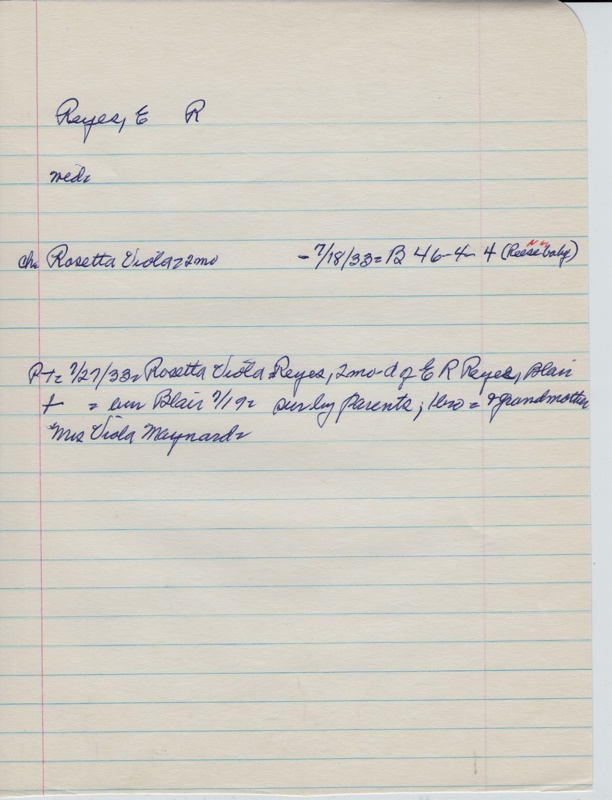 Reyes, E R
med=
ch= Rosetta Viola=2mo - 7/18/33= B 46-4-4 (Reese baby)
Pt= 7/27/33= Rosetta Viola Reyes, 2mo-d of E R Reyes, Blair
+ = bur Blair 7/19= sur by parents; 1bro = & grandmother
Mrs Viola Maynard=